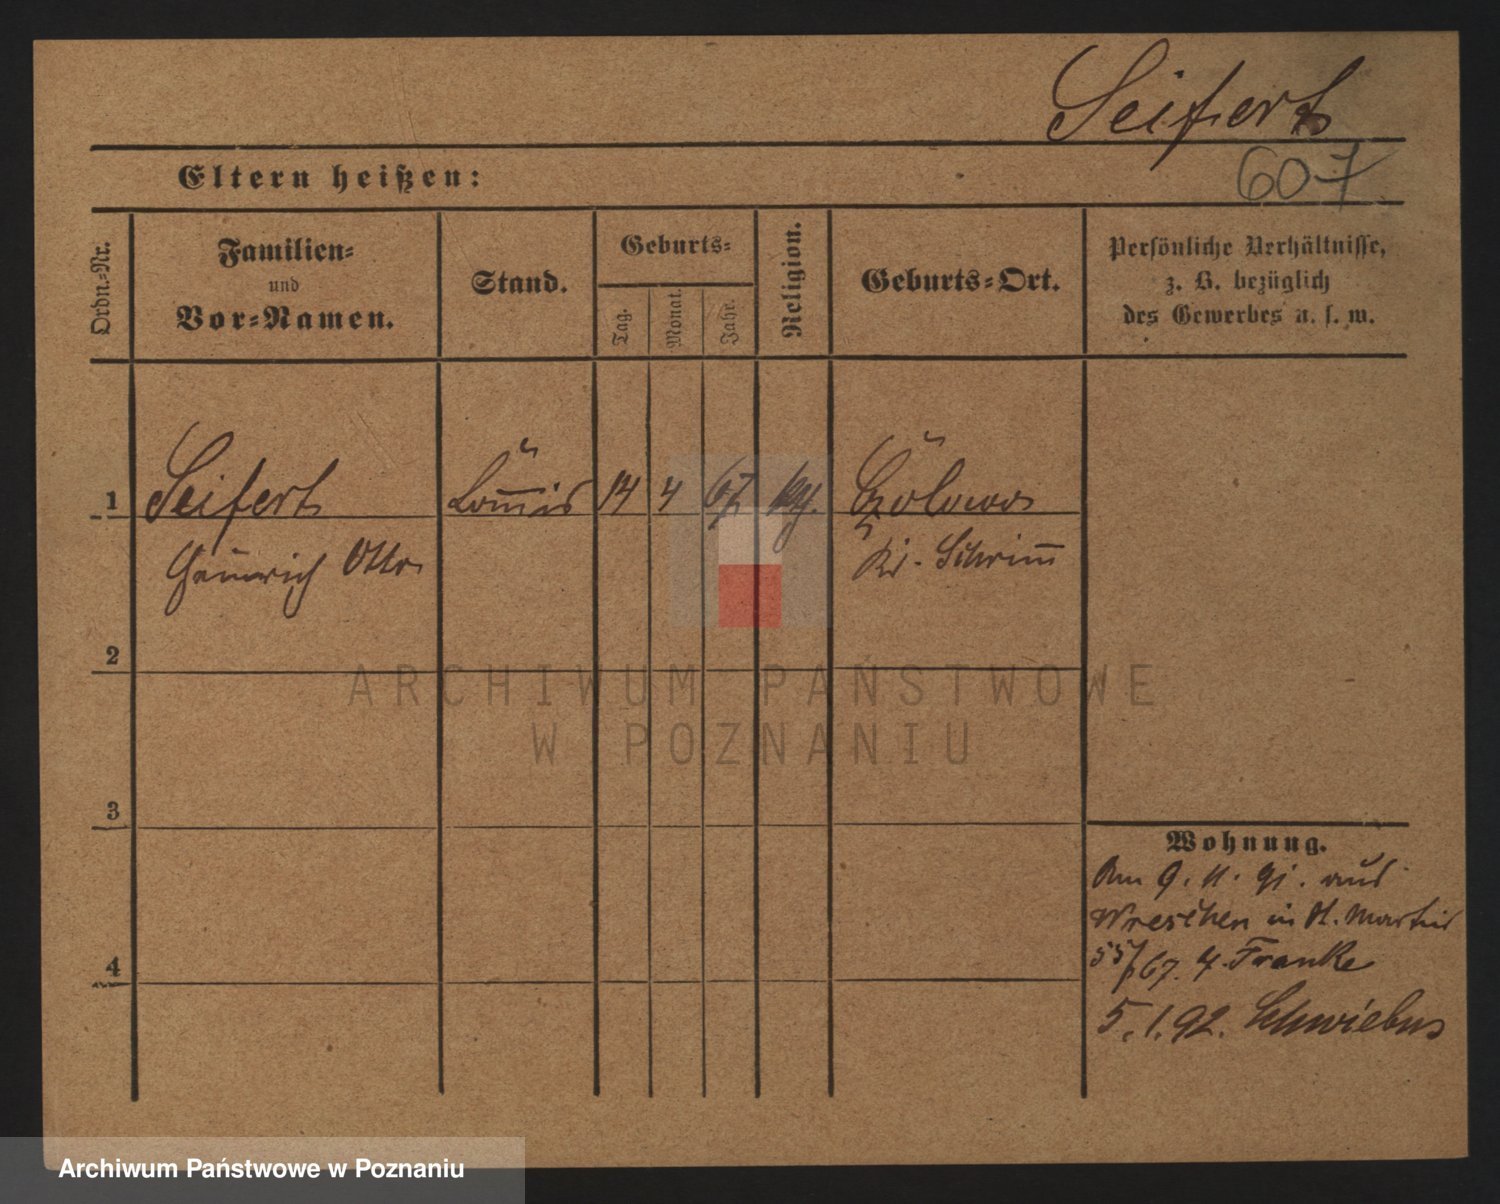 Seifert
607
Eltern heißen:
Ordn.=Nr.
Familien=
und
Vor=Namen.
Stand.
Geburts=
Tag.
Monat.
Jahr.
Religion.
Geburts=Ort.
Persönliche Verhältnisse,
z. B. bezüglich
des Gewerbes u. s. w.
1
Seifert
Com̅is
14
4
67
Heinrich Otto
Kr. Schrim̅
2
ARCHIWUM PAŃSTWOWE
W POZNANIU
3
Wohnung.
Am 9. 11. 91. aus
Wreschen in St. Martin
55/67. Franke
4
5.1.92. Schwiebus
Archiwum Państwowe w Poznaniu